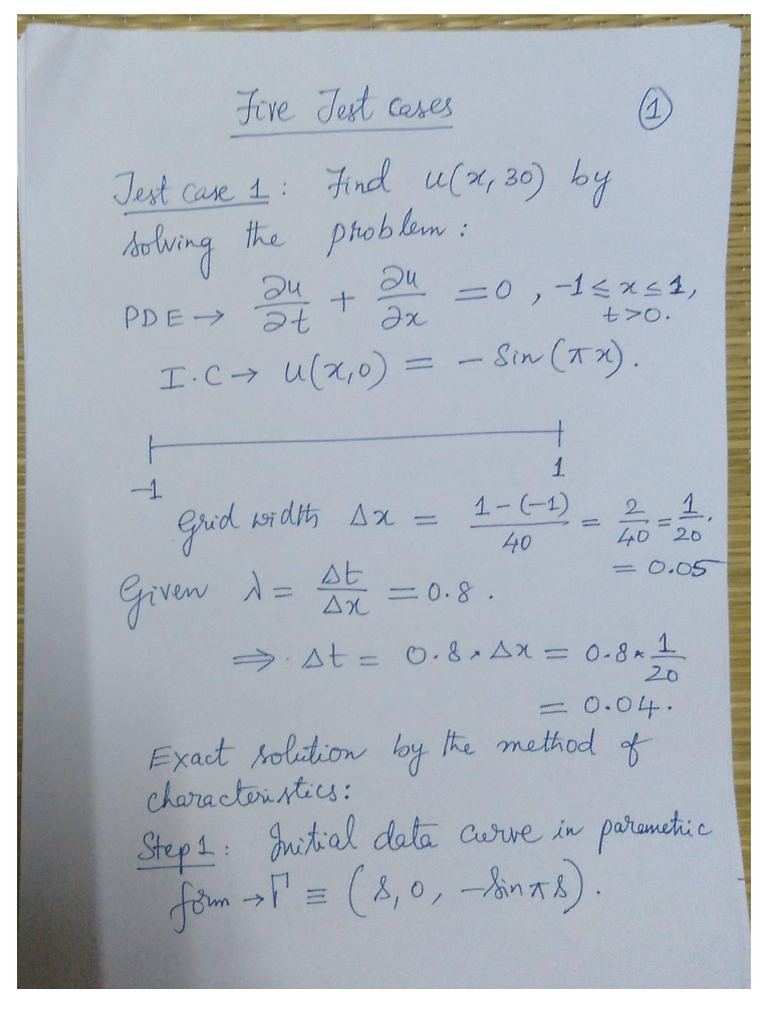 Five Test cases
①
Test case 1 : Find u(x, 30) by
solving the problem :
PDE → ∂u/∂t + ∂u/∂x = 0 , -1 ≤ x ≤ 1,
t > 0.
I.C → u(x,0) = - Sin(πx).
-1 1
Grid width Δx = 1-(-1)/40 = 2/40 = 1/20.
= 0.05
Given λ = Δt/Δx = 0.8 .
⇒ Δt = 0.8 * Δx = 0.8 * 1/20
= 0.04.
Exact solution by the method of
characteristics:
Step 1 : Initial data curve in parametric
form → Γ ≡ (s, 0, -Sin πs).